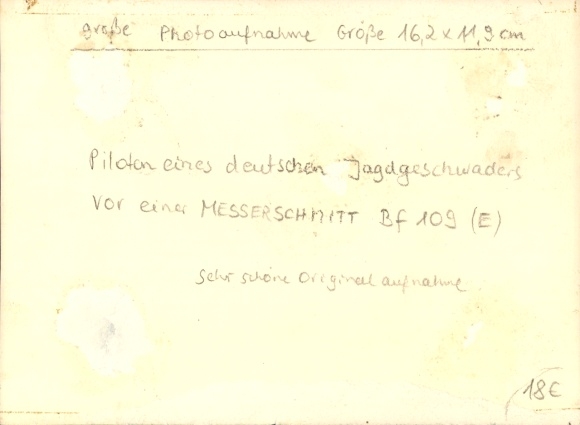 große Photoaufnahme Größe 16,2 x 11,9 cm
Piloten eines deutschen Jagdgeschwaders
vor einer MESSERSCHMITT Bf 109 (E)
sehr schöne Originalaufnahme
18€